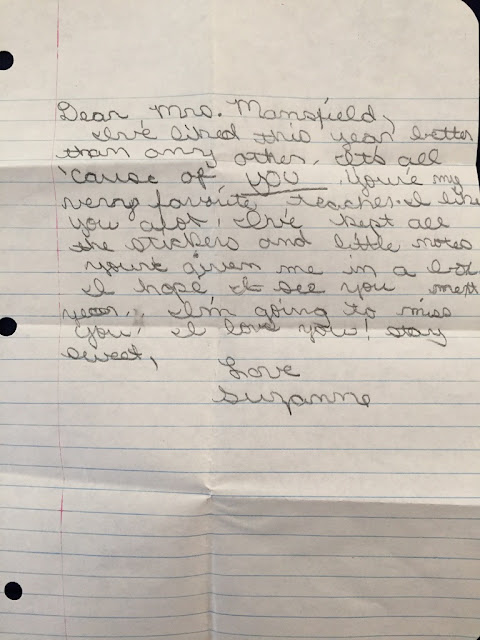 Dear Mrs. Mansfield,
I've liked this year better
than any other. It's all
'cause of you. You're my
very favorite teacher. I like
you alot! I've kept all
the stickers and little notes
you've given me in a box
I hope I see you next
year. I'm going to miss
you! I love you! stay
sweet,
Love
Suzanne